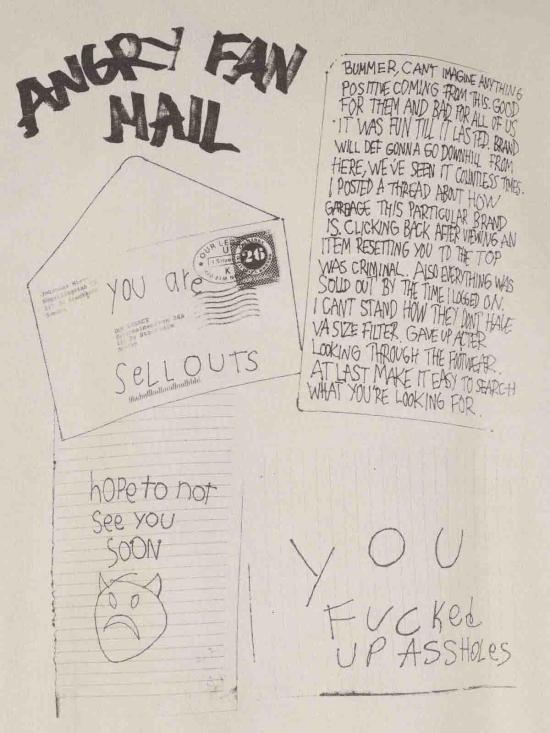 ANGRY FAN
MAIL
BUMMER, CANT IMAGINE ANYTHING
POSITIVE COMING FROM THIS. GOOD
FOR THEM AND BAD FOR ALL OF US
IT WAS FUN TILL IT LASTED. BRAND
WILL DEF GONNA GO DOWNHILL FROM
HERE, WE'VE SEEN IT COUNTLESS TIMES.
I POSTED A THREAD ABOUT HOW
GARBAGE THIS PARTICULAR BRAND
IS. CLICKING BACK AFTER VIEWING AN
ITEM RESETTING YOU TO THE TOP
WAS CRIMINAL. ALSO EVERYTHING WAS
SOLD OUT BY THE TIME I LOGGED ON.
I CANT STAND HOW THEY DON'T HAVE
VA SIZE FILTER. GAVE UP AFTER
LOOKING THROUGH THE FOOTWEAR.
AT LAST MAKE IT EASY TO SEARCH
WHAT YOU'RE LOOKING FOR.
OUR LE
26
you are
SELLOUTS
hOPe to not
See you
SOON
YOU
FUCKed
UP ASSHOLes